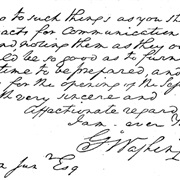 to such things as you sh
acts for communication
and noting them as they o
ld be so good as to furn
time to be prepared, and
for the opening of the Sep
th very sincere and
affectionate regard
I am – ever y
Go Washing
n Junr Esq